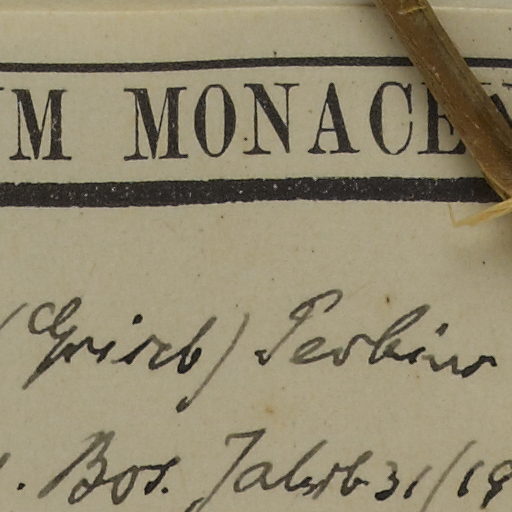 UM MONACEN
(Griseb) Perkins
. Bot. Jahrb 31/19